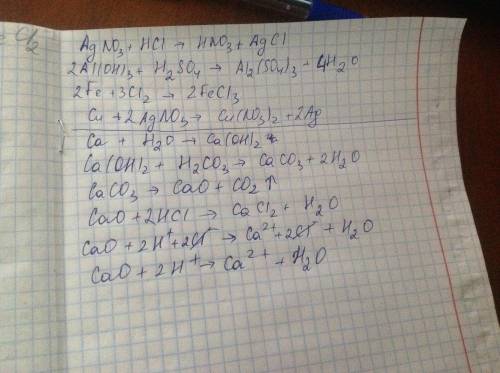 AgNO₃ + HCl → HNO₃ + AgCl
2Al(OH)₃ + H₂SO₄ → Al₂(SO₄)₃ + 4H₂O
2Fe + 3Cl₂ → 2FeCl₃
Cu + 2AgNO₃ → Cu(NO₃)₂ + 2Ag
Ca + H₂O → Ca(OH)₂
Ca(OH)₂ + H₂CO₃ → CaCO₃ + 2H₂O
CaCO₃ → CaO + CO₂ ↑
CaO + 2HCl → CaCl₂ + H₂O
CaO + 2H⁺ + 2Cl⁻ → Ca²⁺ + 2Cl⁻ + H₂O
CaO + 2H⁺ → Ca²⁺ + H₂O